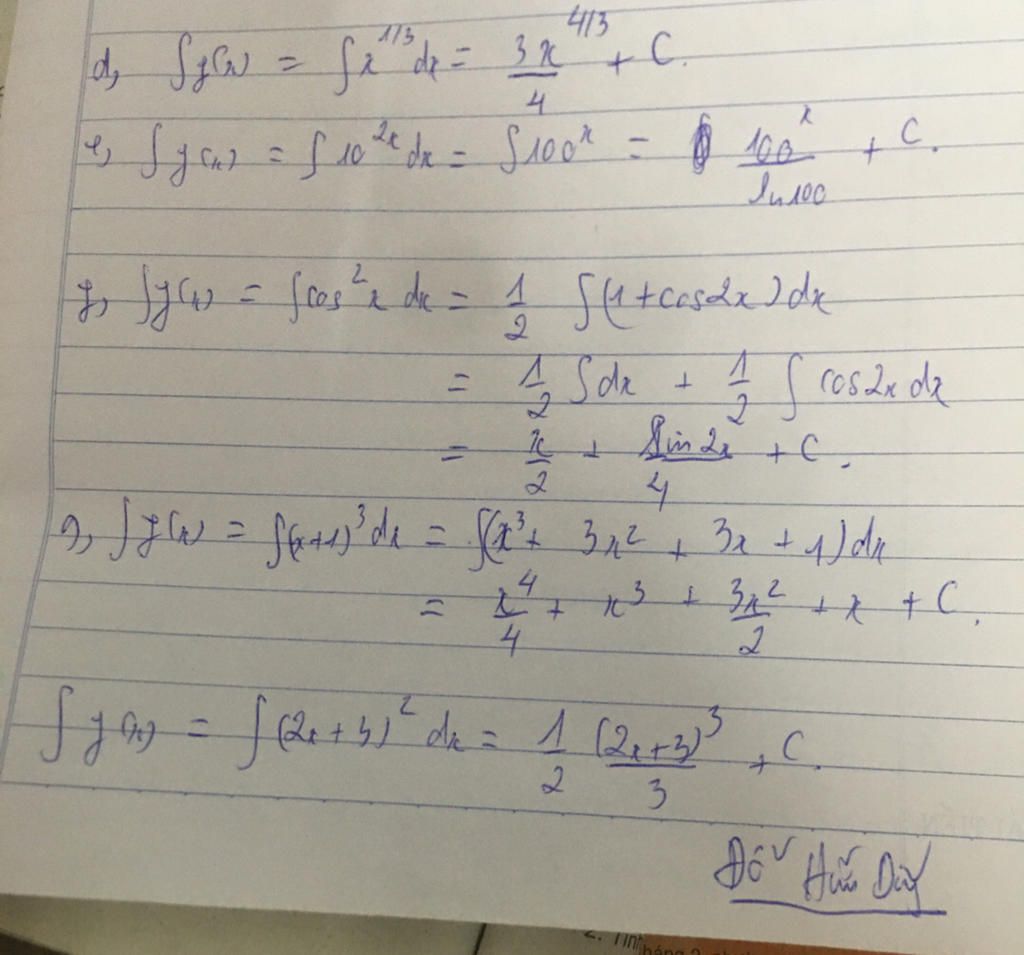 d, ∫y(x) = ∫x^{1/3} dx = \frac{3x^{4/3}}{4} + C.
e, ∫y(x) = ∫10^{2x} dx = ∫100^x = \frac{100^x}{ln100} + C.
y, ∫y(x) = ∫cos^2 x dx = \frac{1}{2} ∫(1 + cos2x) dx
= \frac{1}{2} ∫dx + \frac{1}{2} ∫ cos2x dx
= \frac{x}{2} + \frac{sin 2x}{4} + C.
g, ∫y(x) = ∫(x+1)^3 dx = ∫(x^3 + 3x^2 + 3x + 1) dx
= \frac{x^4}{4} + x^3 + \frac{3x^2}{2} + x + C.
∫y(x) = ∫(2x+3)^2 dx = \frac{1}{2} \frac{(2x+3)^3}{3} + C.
Đỗ Hữu Duy
2. Tính